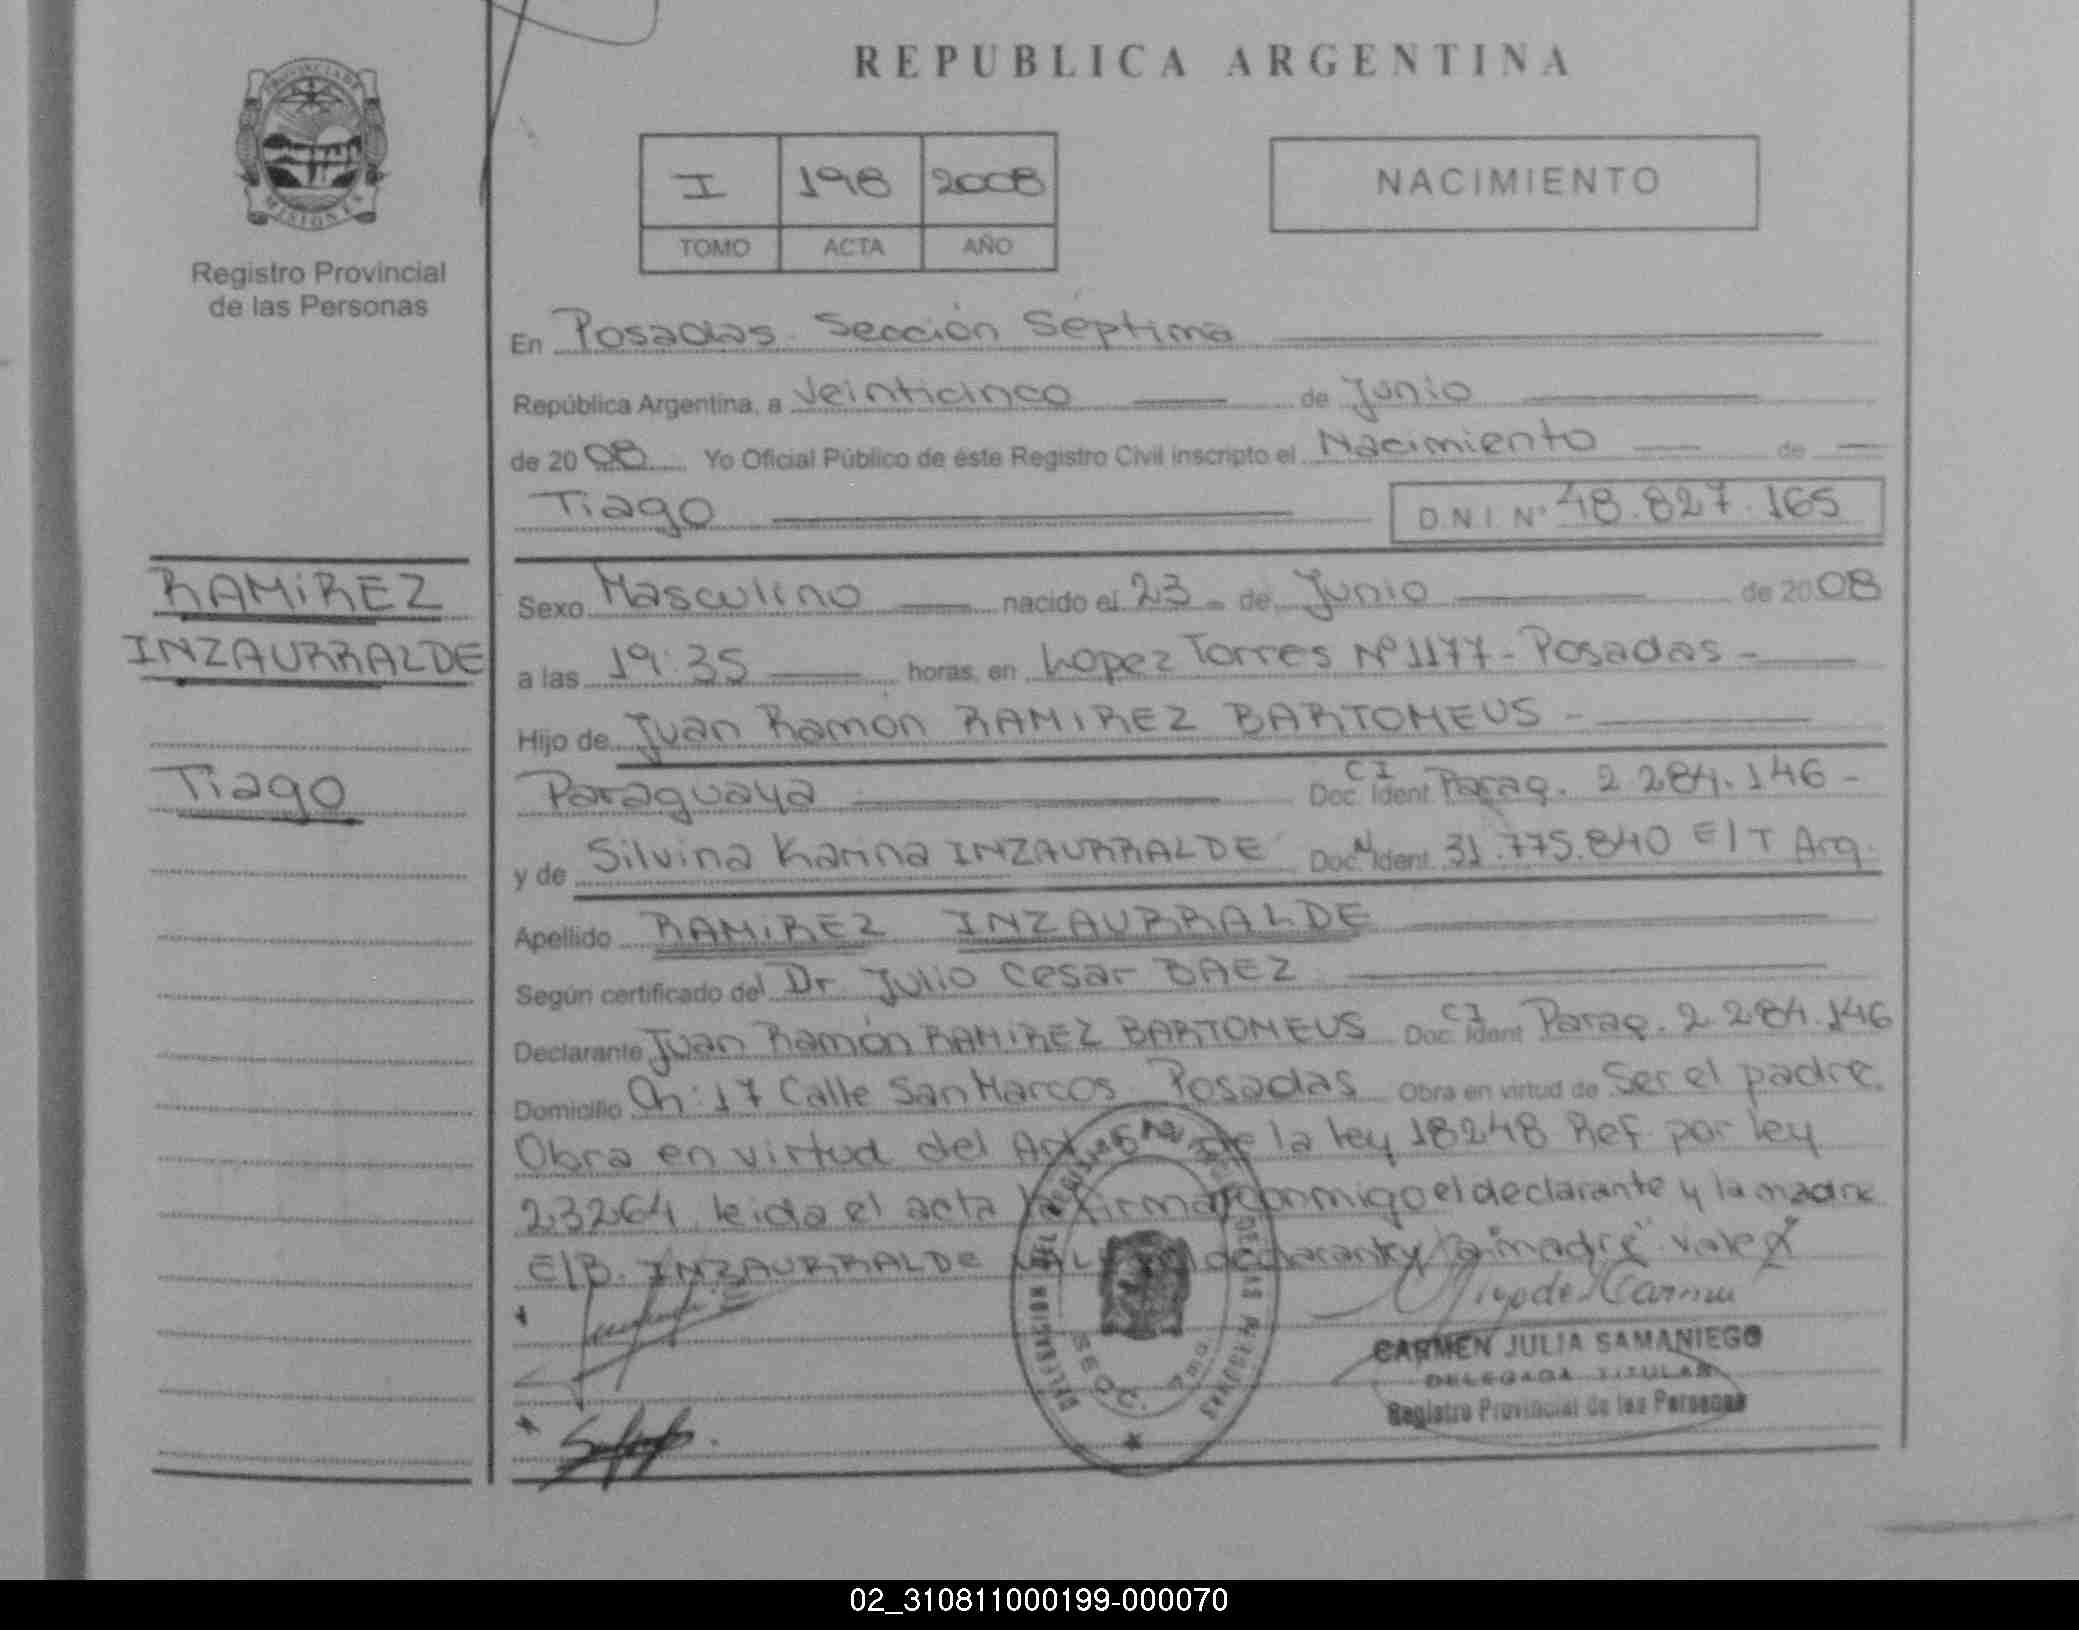 REPUBLICA ARGENTINA
PROVINCIA DE
MISIONES
Registro Provincial
de las Personas
I 198 2008
TOMO ACTA AÑO
NACIMIENTO
En Posadas Sección Séptima
República Argentina, a Veinticinco de Junio
de 2008 Yo Oficial Público de éste Registro Civil inscripto el Nacimiento de
Tiago D N I Nº 48.827.165
RAMIREZ
INZAURRALDE
Tiago
Sexo Masculino nacido el 23 - de Junio de 2008
a las 19:35 horas, en Lopez Torres Nº 1177 - Posadas -
Hijo de Juan Ramón RAMIREZ BARTOMEUS -
Paraguaya Doc. Ident. CI Parag. 2 284.146 -
y de Silvina Karina INZAURRALDE Doc. Ident. 31.775.840 E/T Arg.
Apellido RAMIREZ INZAURRALDE
Según certificado del Dr Julio Cesar BAEZ
Declarante Juan Ramón RAMIREZ BARTOMEUS Doc. Ident CI Parag. 2.284.146
Domicilio Ch: 17 Calle San Marcos Posadas Obra en virtud de Ser el padre.
Obra en virtud del de la ley 18248 Ref. por ley
23264. leida el acta la firman conmigo el declarante y la madre
E/B. INZAURRALDE declarante y la madre" vale
CARMEN JULIA SAMANIEGO
DELEGADA TITULAR
Registro Provincial de las Personas
02_310811000199-000070